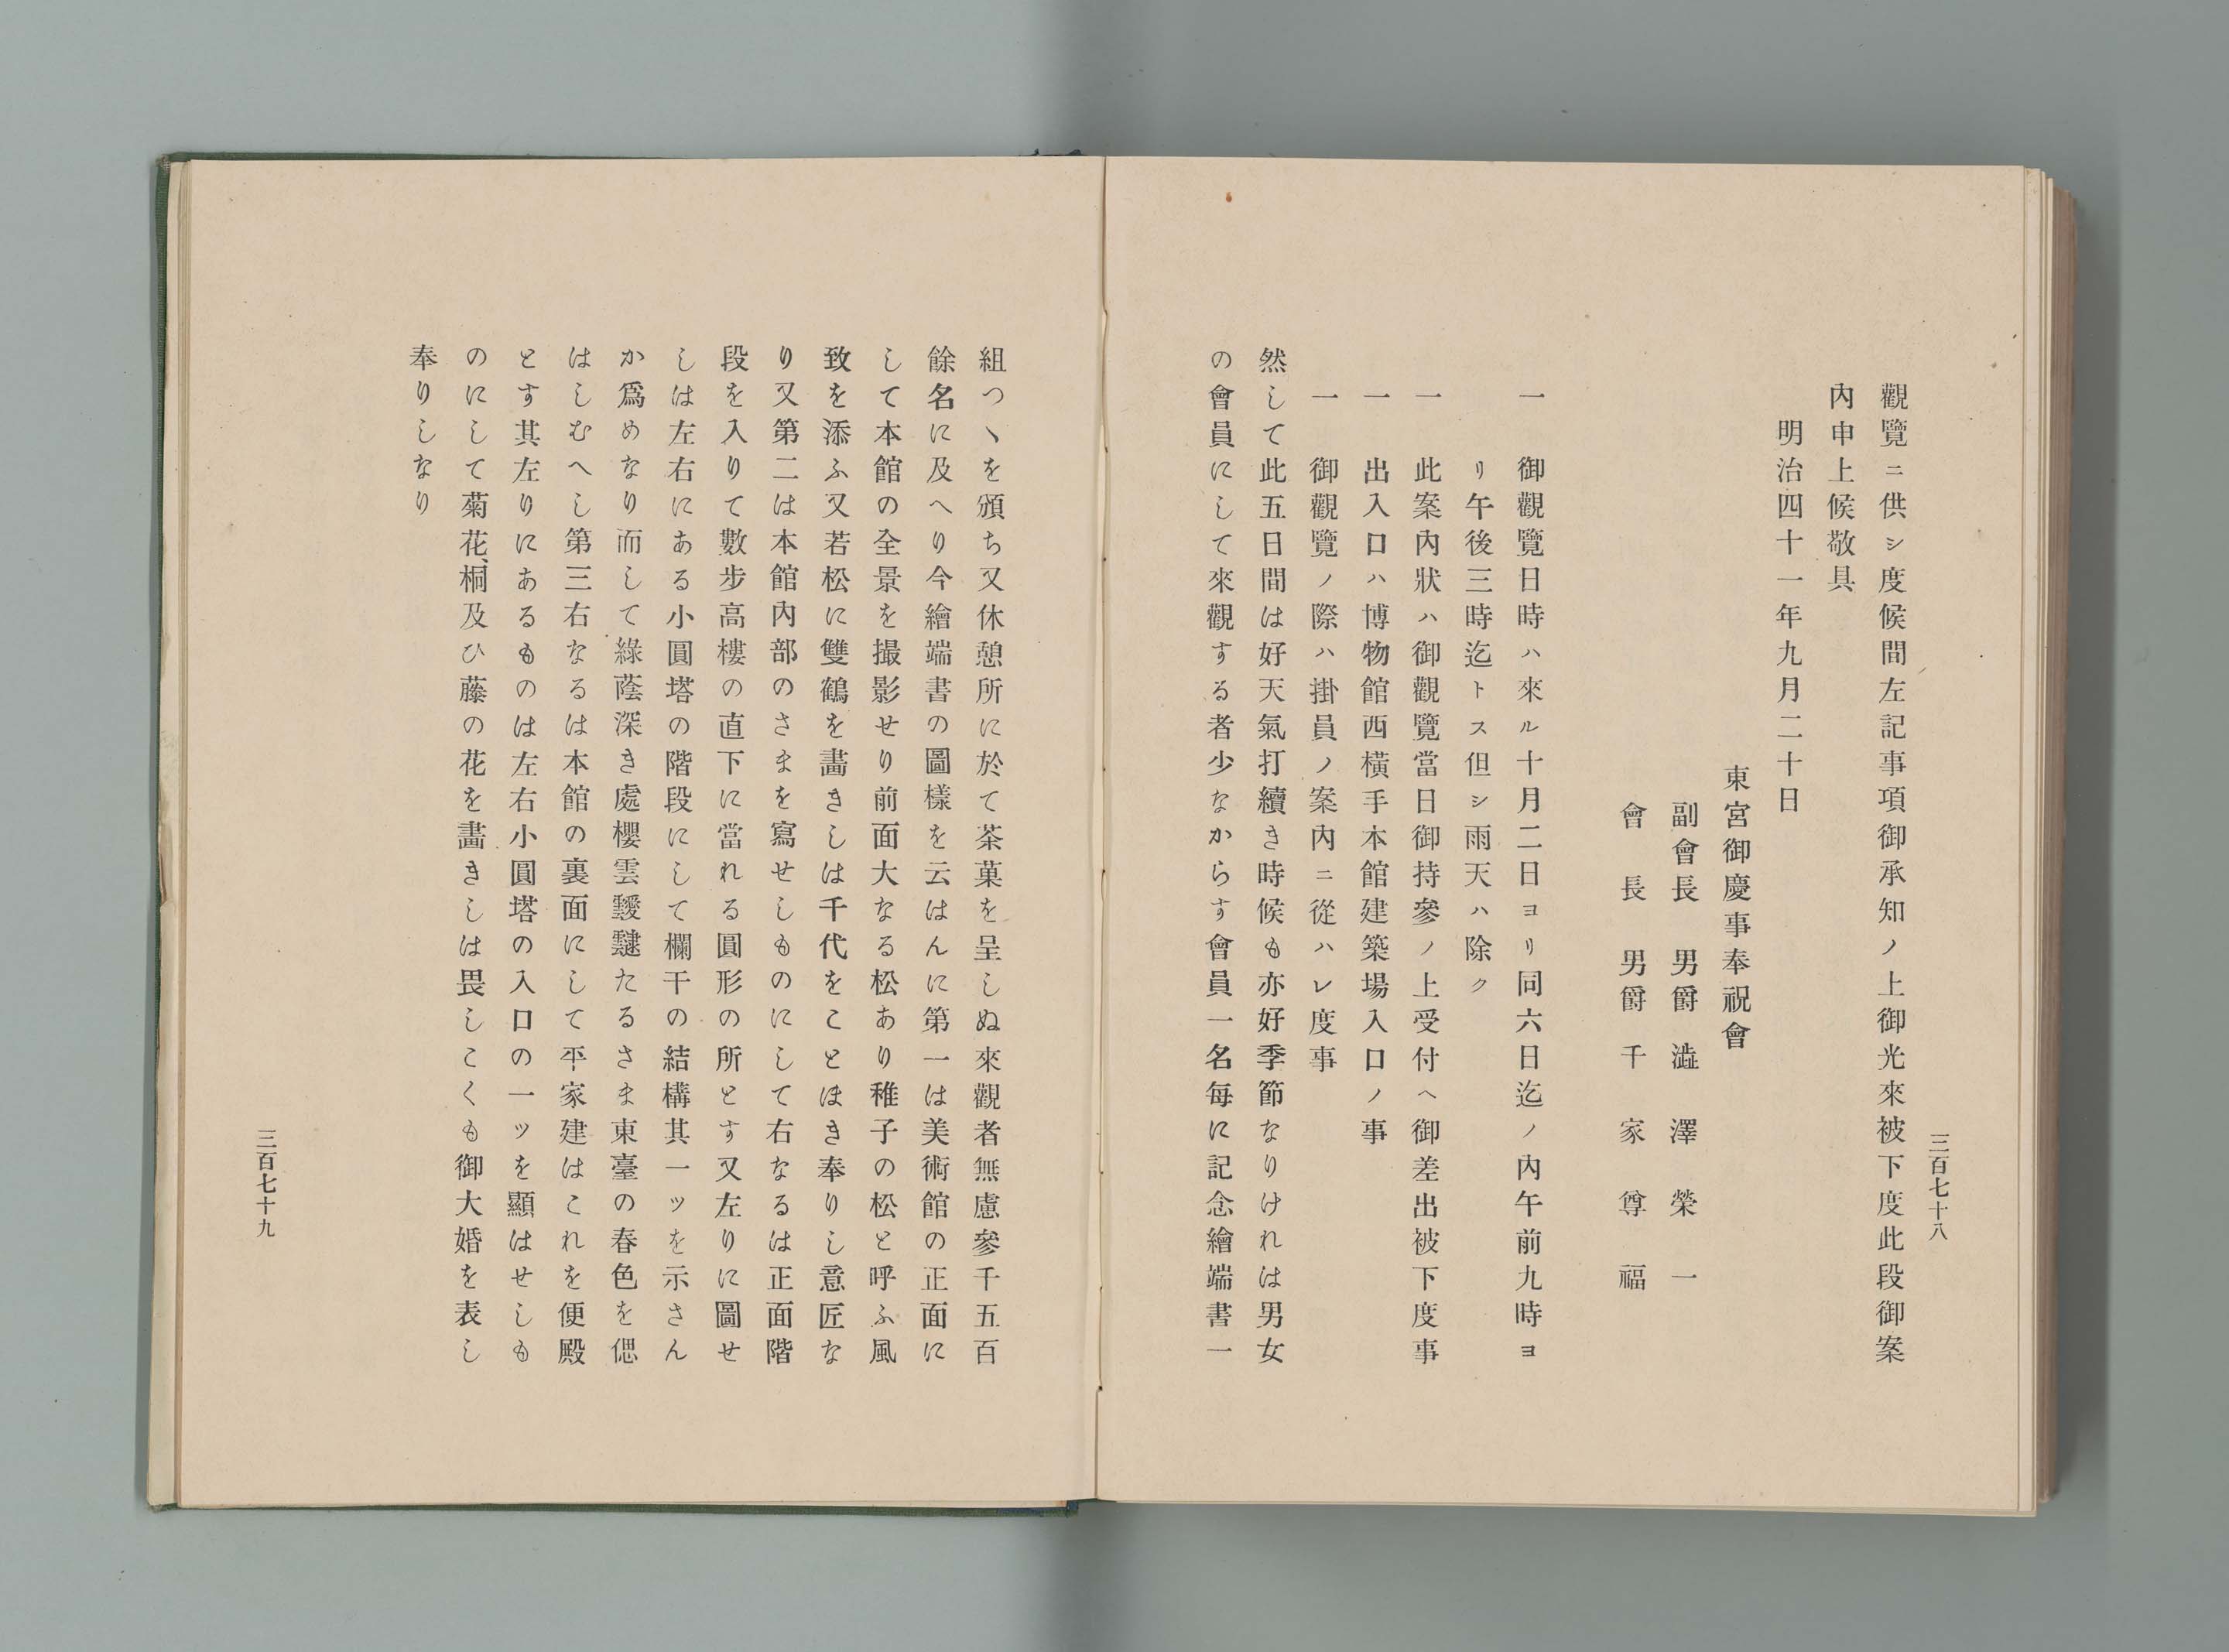 三百七十八
觀覽ニ供シ度候間左記事項御承知ノ上御光來被下度此段御案
內申上候敬具
明治四十一年九月二十日
東宮御慶事奉祝會
副會長 男爵 澁澤榮一
會長 男爵 千家尊福
一 御觀覽日時ハ來ル十月二日ヨリ同六日迄ノ內午前九時ヨ
リ午後三時迄トス但シ雨天ハ除ク
一 此案內狀ハ御觀覽當日御持參ノ上受付ヘ御差出被下度事
一 出入口ハ博物館西橫手本館建築場入口ノ事
一 御觀覽ノ際ハ掛員ノ案內ニ從ハレ度事
然して此五日間は好天氣打續き時候も亦好季節なりけれは男女
の會員にして來觀する者少なからす會員一名每に記念繪端書一
組つヽを頒ち又休憩所に於て茶菓を呈しぬ來觀者無慮參千五百
餘名に及へり今繪端書の圖樣を云はんに第一は美術館の正面に
して本館の全景を撮影せり前面大なる松あり稚子の松と呼ふ風
致を添ふ又若松に雙鶴を畵きしは千代をことほき奉りし意匠な
り又第二は本館內部のさまを寫せしものにして右なるは正面階
段を入りて數步高樓の直下に當れる圓形の所とす又左りに圖せ
しは左右にある小圓塔の階段にして欄干の結構其一ッを示さん
か爲めなり而して綠蔭深き處櫻雲靉靆たるさま東臺の春色を偲
はしむへし第三右なるは本館の裏面にして平家建はこれを便殿
とす其左りにあるものは左右小圓塔の入口の一ッを顯はせしも
のにして菊花、桐及ひ藤の花を畵きしは畏しこくも御大婚を表し
奉りしなり
三百七十九